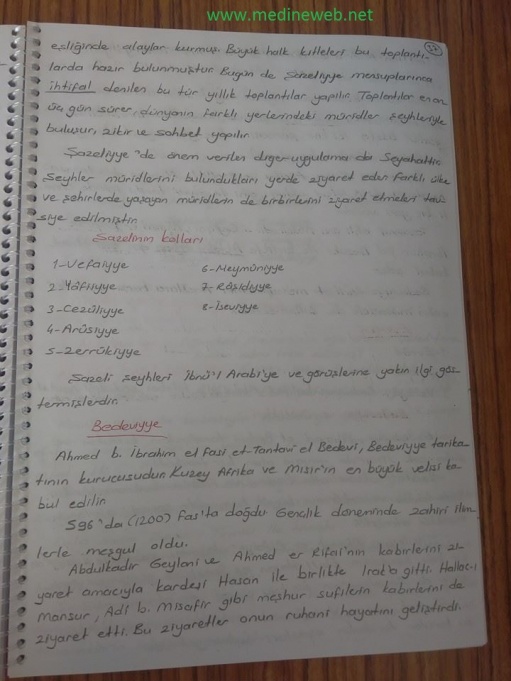 www.medineweb.net
37
eşliğinde alaylar kurmuş. Büyük halk kitleleri bu toplantı-
larda hazır bulunmuştur. Bugün de Şazeliyye mensuplarınca
ihtifal denilen bu tür yıllık toplantılar yapılır. Toplantılar en az
üç gün sürer, dünyanın farklı yerlerindeki müridler şeyhleriyle
buluşur, zikir ve sohbet yapılır.
Şazeliyye'de önem verilen diğer uygulama da Seyahattir.
Şeyhler müridlerini bulundukları yerde ziyaret eder. Farklı ülke
ve şehirlerde yaşayan müridlerin de birbirlerini ziyaret etmeleri tav-
siye edilmiştir.
Şazelinin kolları
1-Vefaiyye 6-Meymûniyye
2-Yâfiiyye 7-Râşidiyye
3-Cezûliyye 8-İseviyye
4-Arûsiyye
5-Zerrûkiyye
Şazeli şeyhleri İbnü'l Arabi'ye ve görüşlerine yakın ilgi gös-
termişlerdir.
Bedeviyye
Ahmed b. İbrahim el Fasi et-Tantavi el Bedevi, Bedeviyye tarika-
tının kurucusudur. Kuzey Afrika ve Mısır'ın en büyük velisi ka-
bul edilir.
596'da (1200) Fas'ta doğdu. Gençlik döneminde zahiri ilim-
lerle meşgul oldu.
Abdulkadir Geylani ve Ahmed er Rifai'nin kabirlerini zi-
yaret amacıyla kardeşi Hasan ile birlikte Irak'a gitti. Hallac-ı
Mansur, Adi b. Misafir gibi meşhur sufilerin kabirlerini de
ziyaret etti. Bu ziyaretler onun ruhani hayatını geliştirdi.